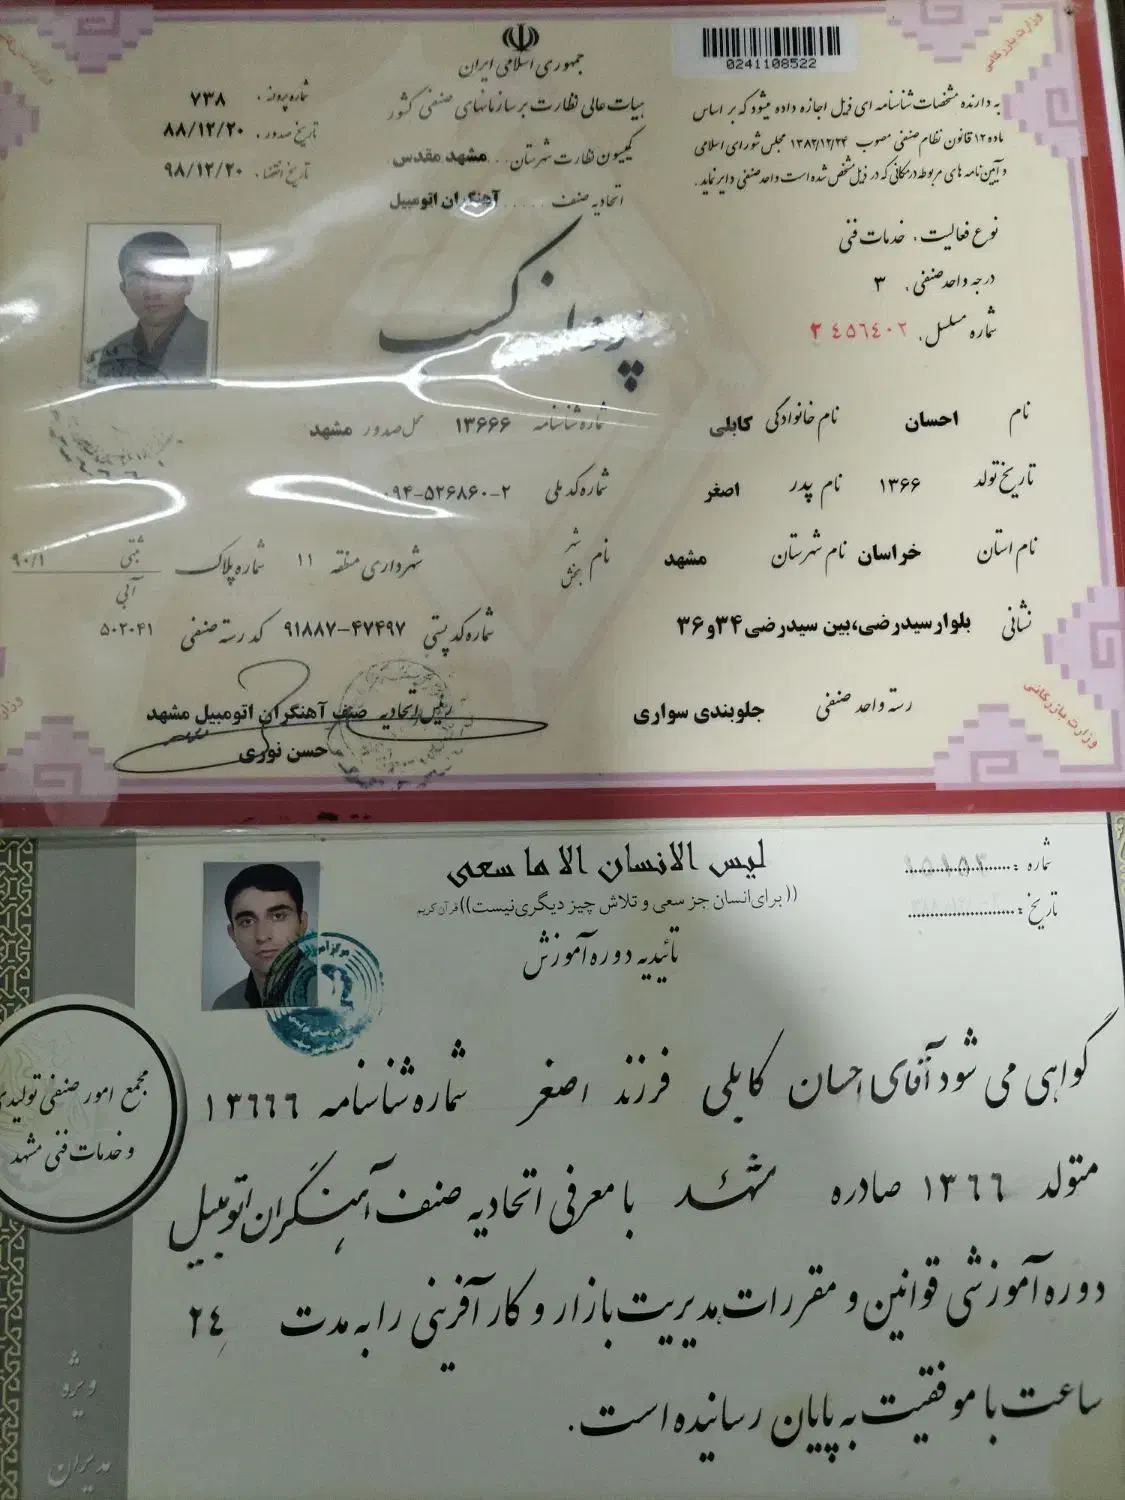 جمهوری اسلامی ایران
0241108522
هیات عالی نظارت بر سازمانهای صنفی کشور
کمیسیون نظارت شهرستان... مشهد مقدس
اتحادیه صنف ..... آهنگران اتومبیل
شماره پرونده . ۷۳۸
تاریخ صدور . ۸۸/۱۲/۲۰
تاریخ انقضا . ۹۸/۱۲/۲۰
به دارنده مشخصات شناسنامه ای ذیل اجازه داده میشود که بر اساس
ماده ۱۲ قانون نظام صنفی مصوب ۱۳۸۲/۱۲/۲۴ مجلس شورای اسلامی
و آیین نامه های مربوطه در مکانی که در ذیل مشخص شده است واحد صنفی دایر نماید.
نوع فعالیت . خدمات فنی
درجه واحد صنفی . ۳
شماره مسلسل .
پروانه کسب
نام احسان نام خانوادگی کابلی شماره شناسنامه ۱۳۶۶۶ محل صدور مشهد
تاریخ تولد ۱۳۶۶ نام پدر اصغر شماره کد ملی ۰۹۴-۵۲۶۸۶۰-۲
نام استان خراسان نام شهرستان مشهد نام شهر بخش شهرداری منطقه ۱۱ شماره پلاک ثبتی ۹۰/۱ آبی
نشانی بلوار سیدرضی،بین سیدرضی ۳۴و۳۶ شماره کد پستی ۹۱۸۸۷-۴۷۴۹۷ کد رسته صنفی ۵۰۲۰۴۱
رسته واحد صنفی جلوبندی سواری
رئیس اتحادیه صنف آهنگران اتومبیل مشهد
حسن نوری
وزارت بازرگانی
وزارت بازرگانی
لیس الانسان الا ما سعی
((برای انسان جز سعی و تلاش چیز دیگری نیست)) قرآن کریم
تائیدیه دوره آموزش
شماره :
تاریخ :
گواهی می شود آقای احسان کابلی فرزند اصغر شماره شناسنامه ۱۳۶۶۶
متولد ۱۳۶۶ صادره مشهد با معرفی اتحادیه صنف آهنگران اتومبیل
دوره آموزشی قوانین و مقررات، مدیریت بازار و کار آفرینی را به مدت ۲۴
ساعت با موفقیت به پایان رسانیده است.
مجمع امور صنفی تولیدی
و خدمات فنی مشهد
ویژه
مدیران